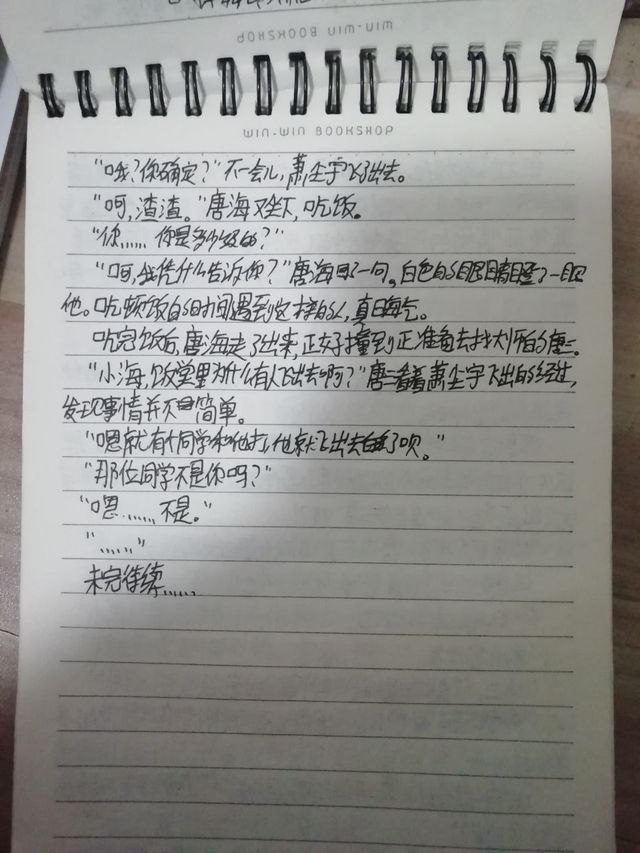 WIN-WIN BOOKSHOP
WIN-WIN BOOKSHOP
“哦？你确定？”不一会儿，萧尘宇飞了出去。
“呵，渣渣。”唐海又坐下，吃饭。
“你……你是多少级的？”
“呵，我凭什么告诉你？”唐海回了一句。白色的眼睛瞪了一眼
他。吃顿饭的时间遇到这样的人，真晦气。
吃完饭后，唐海走了出来，正好撞到正准备去找大师的唐三。
“小海，饭堂里为什么有人飞出去啊？”唐三看着萧尘宇飞出的经过，
发现事情并不简单。
“嗯就有个同学和他打，他就飞出去了呗。”
“那位同学不是你吗？”
“嗯……不是。”
“……”
未完待续……